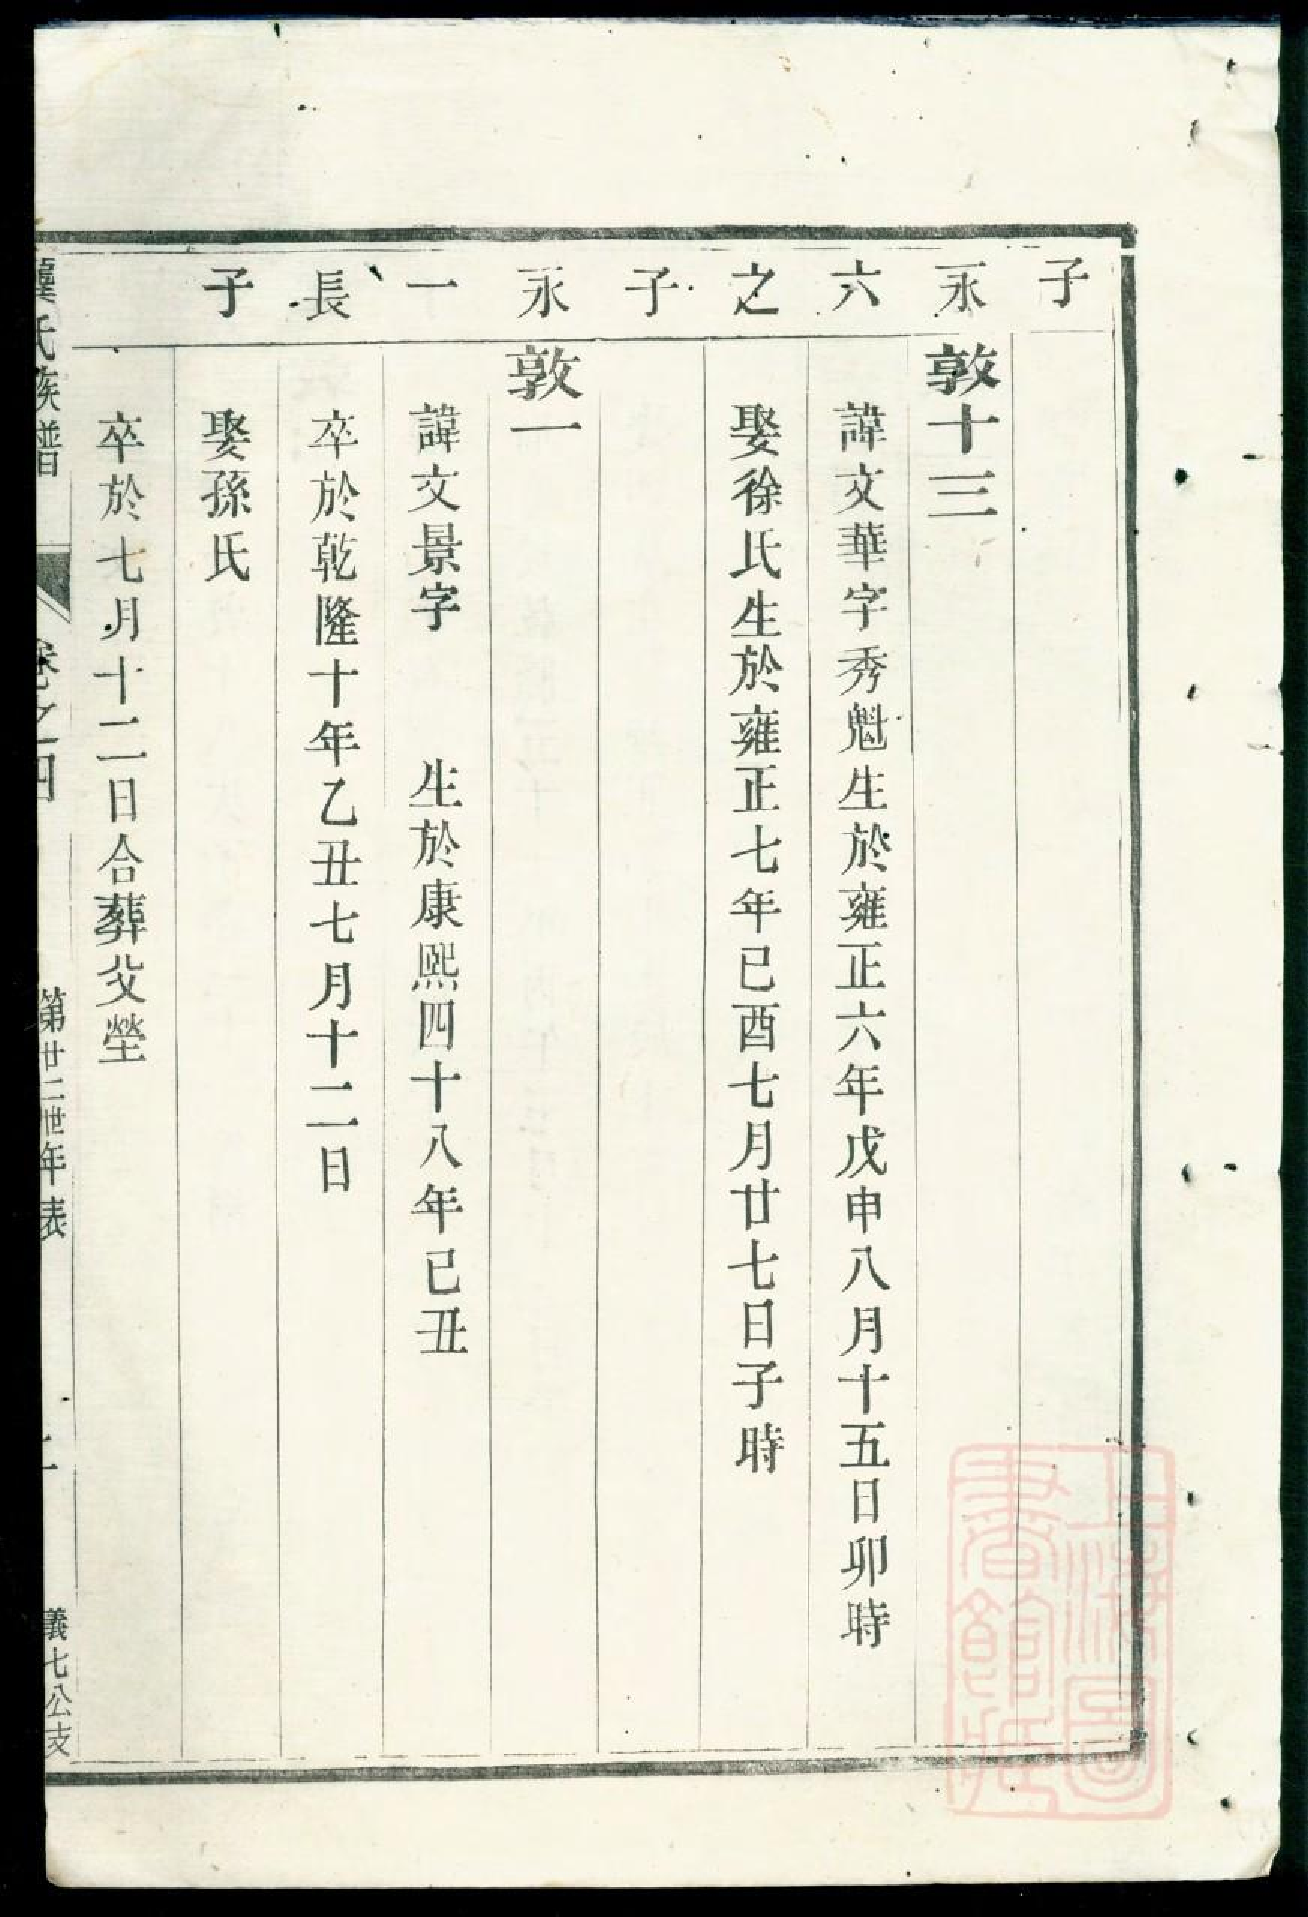 子
永 敦十三
六 諱文華字秀魁生於雍正六年戊申八月十五日卯時
之 娶徐氏生於雍正七年已酉七月廿七日子時
子
永 敦一
一 諱文景字 生於康熙四十八年已丑
長 卒於乾隆十年乙丑七月十二日
子 娶孫氏
卒於七月十二日合葬父塋
龔氏族譜 卷之四 第廿二世年表 義七公支
上海圖書館藏